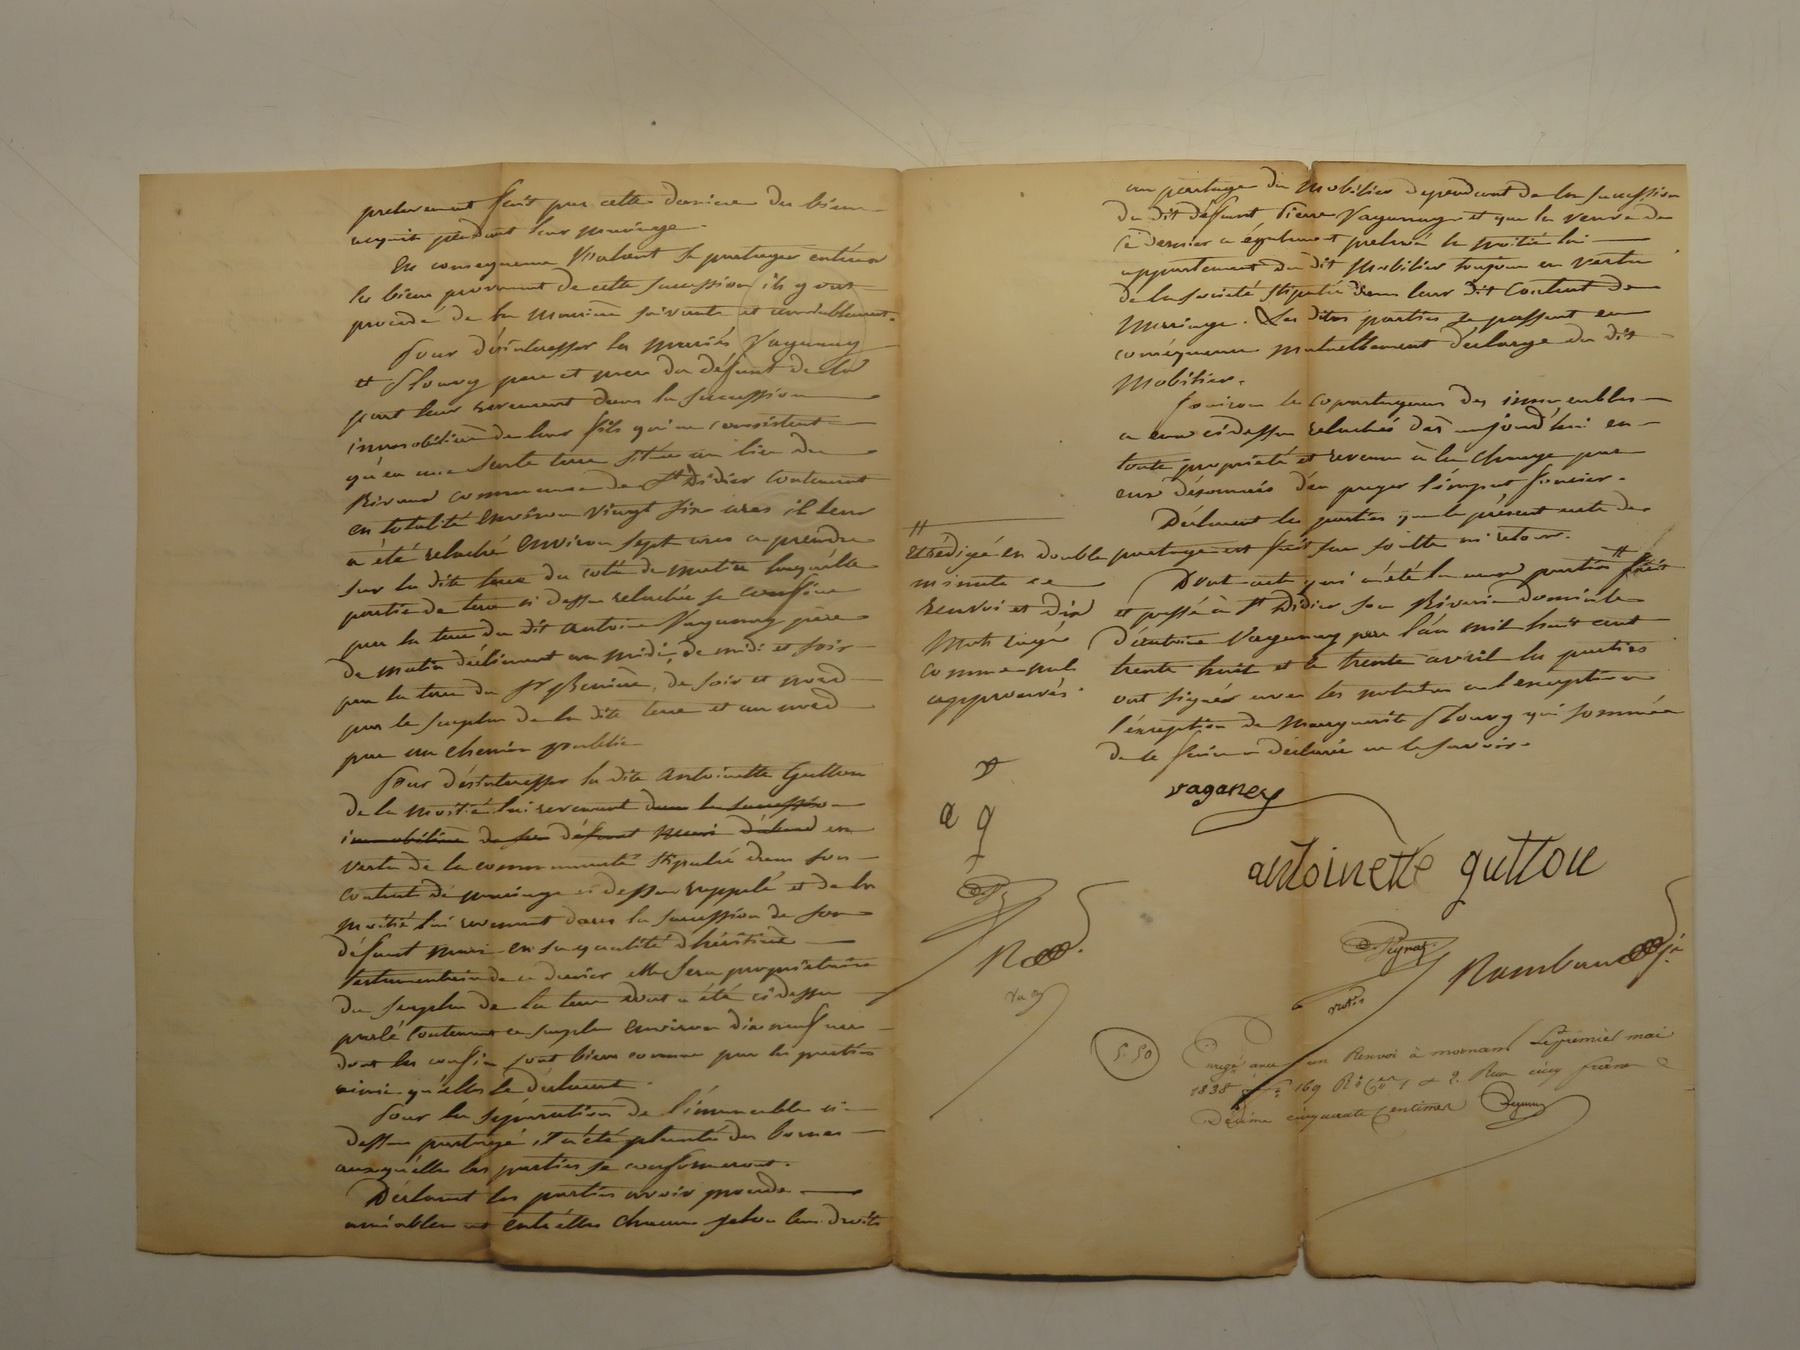 prelevement fait par cette derniere des biens
acquis pendant leur mariage.
En consequence Voulant se partager entieux
les biens provenant de cette succession ils y ont
procédé de la maniere suivante et
Pour désinteresser les mariés Vaganay
et Flourg pere et mere du défunt de la
part leur revenant dans la succession
immobilière de leur fils qui ne consistent
qu'en une seule terre située au lieu du
Rivand commune de St Didier contenant
en totalité environ vingt six ares il leur
a été relaché environ sept ares a prendre
sur la dite terre du coté de matin laquelle
partie de terre ci dessus relachée se confine
par la terre du dit Antoine Vaganay pere
de matin déclinant au midi, de midi et soir
par la terre du Sr de soir et nord
par le surplus de la dite terre et au nord
par un chemin public
Pour désinteresser la dite Antoinette Gutton
de la moitié lui revenant dans la succession
immobilière de son défunt mari d'abord en
vertu de la communauté stipulée dans son
contrat de mariage ci dessus rappelé et de la
moitié lui revenant dans la succession de son
défunt mari en sa qualité d'héritiere
testamentaire de ce dernier elle sera propriétaire
du surplus de la terre dont a été ci dessus
parlé contenant ce surplus environ dix neuf ares
dont les confins sont bien connus par les parties
ainsi qu'elles le déclarent.
Pour la séparation de l'immeuble ci
dessus partagé, il a été planté des bornes
auxquelles les parties se conformeront.
Déclarent les parties avoir procédé
amiablement entr'elles chacune selon leurs droits
au partage du Mobilier dependant de la succession
du dit défunt Pierre Vaganay et que la veuve de
ce dernier a également prelevé la moitié lui
appartenant du dit Mobilier toujours en vertu
de la société stipulée dans leur dit Contrat de
Mariage. Les dites parties se passent en
conséquence mutuellement décharge du dit
Mobilier.
Jouiron les copartageans des immeubles
a eux ci dessus relachés dès aujourd'hui en
toute propriété et revenu à la charge par
eux désormais d'en payer l'impot foncier.
Déclarent les parties que le présent acte de
partage est fait sans soulte ni retour.
Dont acte qui a été lu aux parties # fait
et passé à St Didier sous Riverie domicile
d'Antoine Vaganay pere l'an mil huit cent
trente huit et le trente avril les parties
ont signé avec les notaires a l'exception
l'éxception de Marguerite Flourg qui sommée
de le faire a déclaré ne le savoir.
#
et rédigé en double
minute ce
renvoi et dix
mots rayés
comme nuls
approuvés.
v
a g
vaganey
antoinette gutton
notre
Rambaud
5. 50
Enregé avec un Renvoi à mornant Le premier mai
1838 fo 169 Ro Cen 1 et 2. Reçu cinq francs
Décime cinquante Centimes